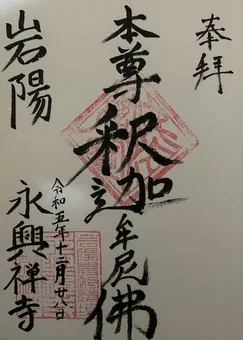 奉拝
本尊釈迦牟尼佛
令和五年十二月廿八日
岩陽
永興禅寺